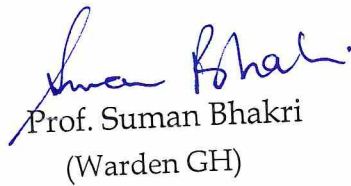 Suman Bhakri
Prof. Suman Bhakri
(Warden GH)